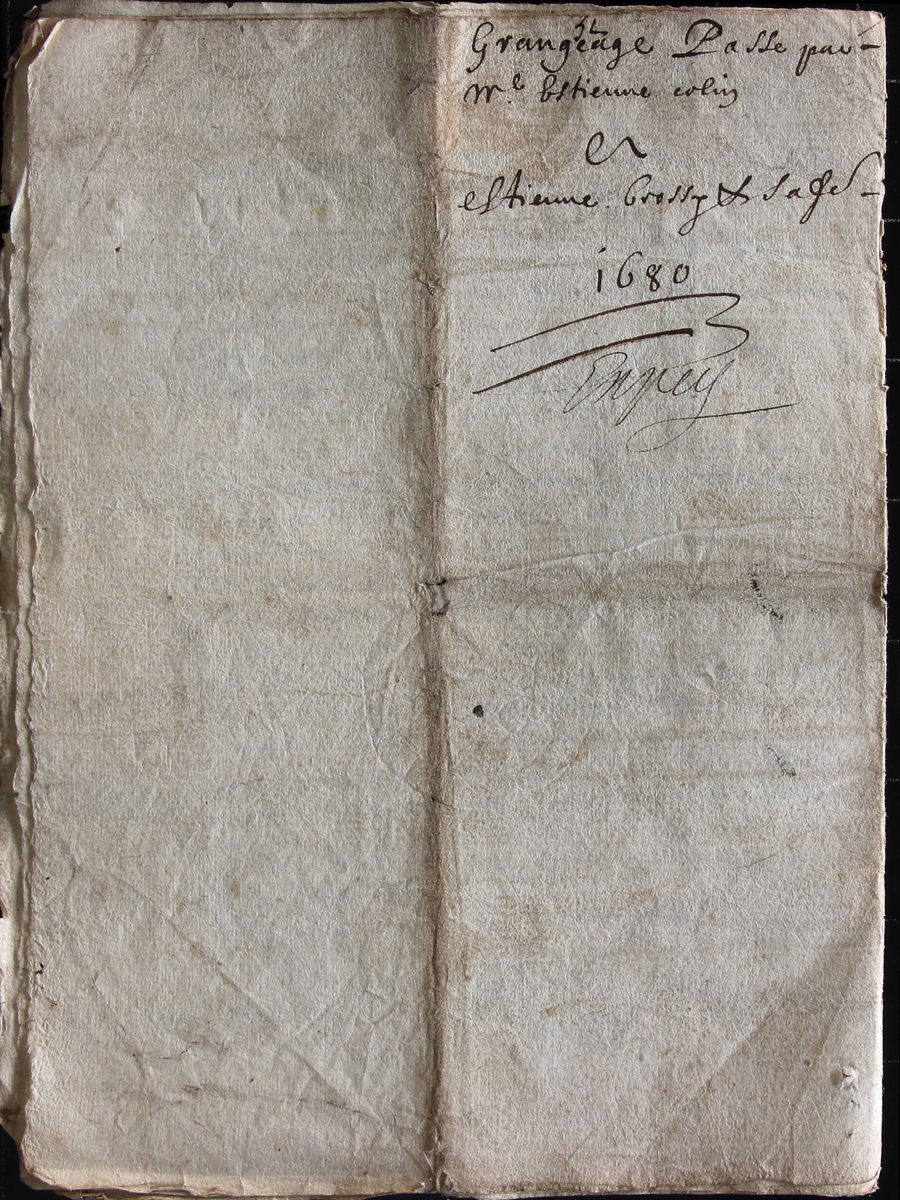 Grangeage Passe par
Me Estienne colin
Et
estienne. Grossy & sa fe
1680